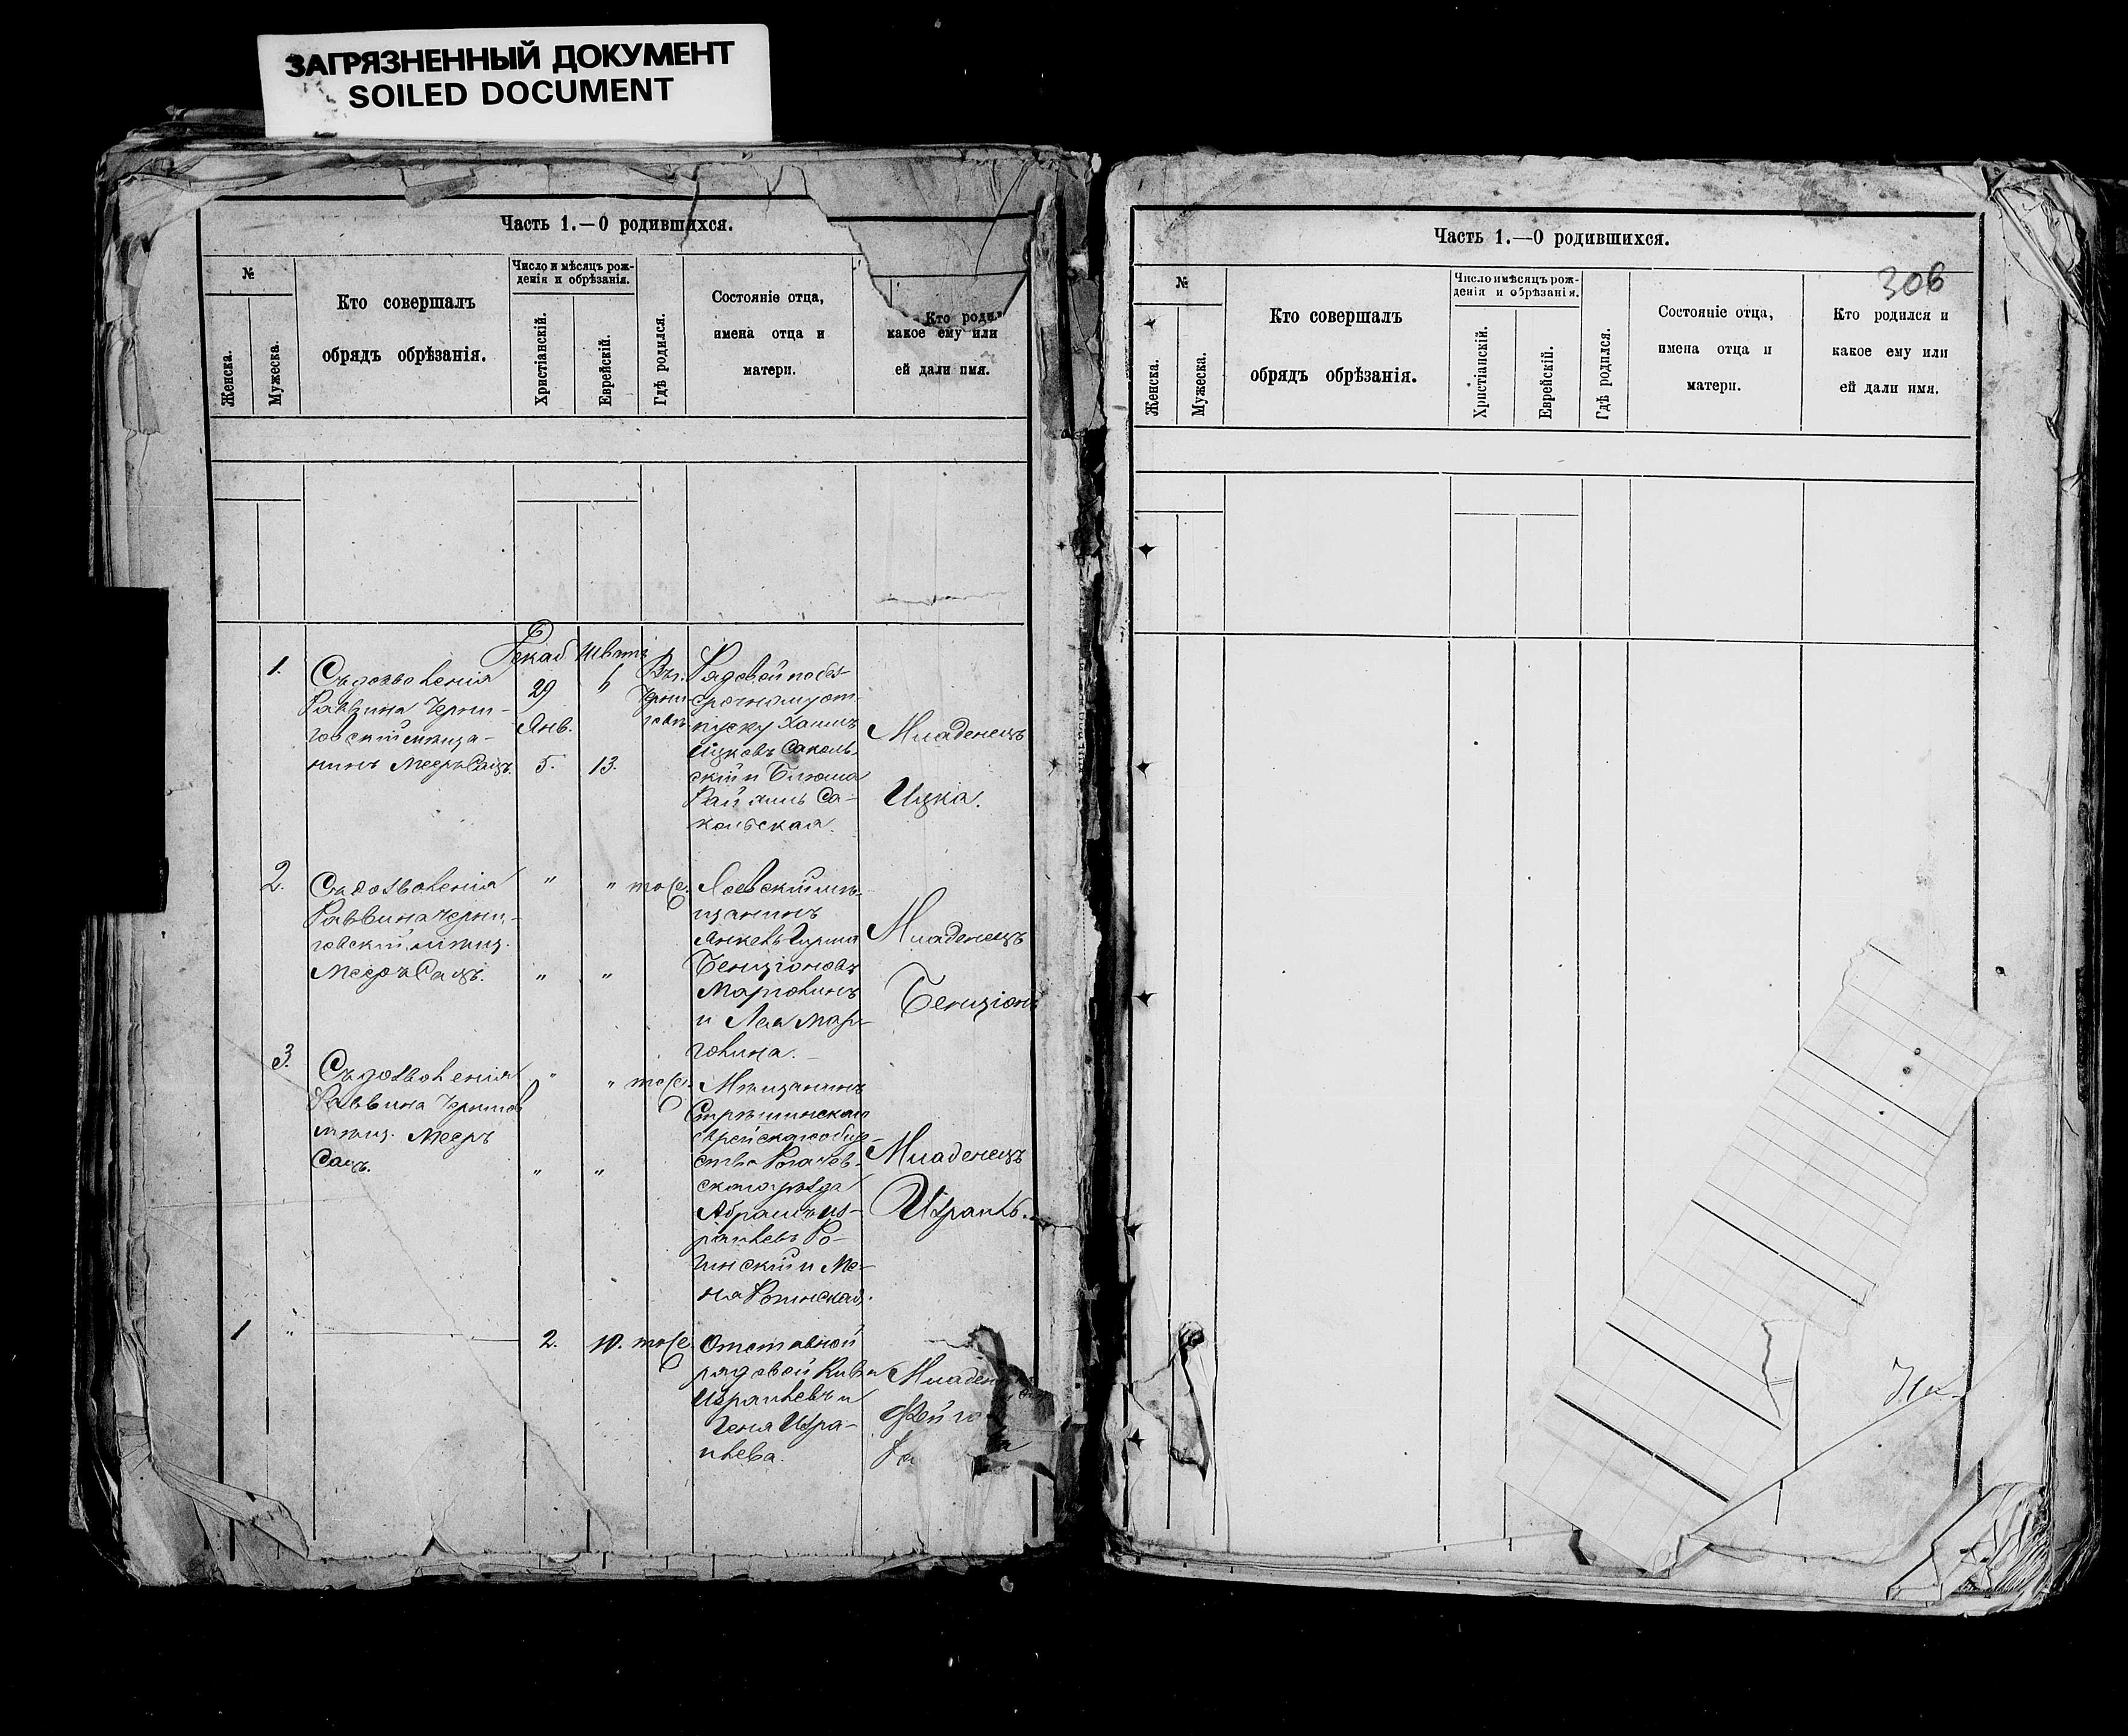 ЗАГРЯЗНЕННЫЙ ДОКУМЕНТ
SOILED DOCUMENT
Часть 1.—О родившихся.
№
Женска.
Мужеска.
Кто совершалъ
обрядъ обрѣзанія.
Число и мѣсяцъ рож-
денія и обрѣзанія.
Христіанскій.
Еврейскій.
Гдѣ родился.
Состояніе отца,
имена отца и
матери.
Кто роди
какое ему или
ей дали имя.
1.
Съ дозволенія
Раввина Черни-
говскій мѣща-
нинъ Мееръ Сацъ.
Декаб
29
Янв.
5.
Шватъ
6
13.
Въ г.
Черни-
говѣ
Рядовой по без-
срочному от-
пуску Хаимъ
Ицковъ Соколь-
скій и Блюма
Со-
кольская.
Младенецъ
Ицка.
2.
Съ дозволенія
Раввина Черни-
говскій мѣщ.
Мееръ Сацъ.
" "
" "
тоже.
мѣ-
щанинъ
Янкель Гирша
Бенціоновъ
Марголинъ
и Лея Мар-
голина.
Младенецъ
Бенціонъ
3.
Съ дозволенія
Раввина Чернигов
мѣщ. Мееръ
Сацъ.
" "
" "
тоже.
Мѣщанинъ
Стрѣшинскаго
еврейскаго обще-
ства Рогачев-
скаго уѣзда
Абрамъ Из-
раилевъ Ро-
гинскій и Ме-
ня Рогинская.
Младенецъ
Израиль.
1
"
2.
10.
тоже.
Отставной
рядовой Кива
Израилевъ и
Геня Изра-
илева.
Младен
Фейго
Часть 1.—О родившихся.
306
№
Женска.
Мужеска.
Кто совершалъ
обрядъ обрѣзанія.
Число и мѣсяцъ рож-
денія и обрѣзанія.
Христіанскій.
Еврейскій.
Гдѣ родился.
Состояніе отца,
имена отца и
матери.
Кто родился и
какое ему или
ей дали имя.